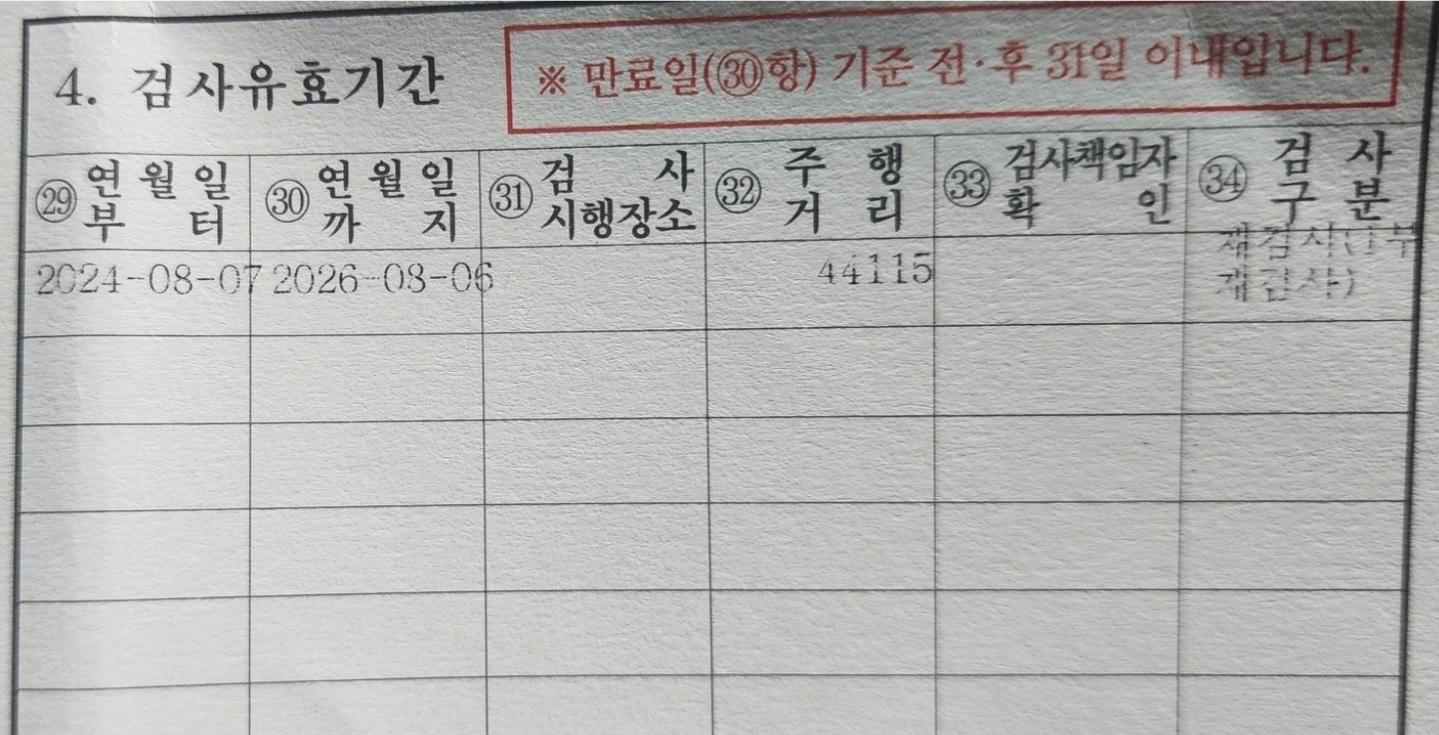 4. 검사유효기간
※ 만료일(㉚항) 기준 전·후 31일 이내입니다.
㉙ 연월일부터 ㉚ 연월일까지 ㉛ 검사시행장소 ㉜ 주행거리 ㉝ 검사책임자확인 ㉞ 검사구분
2024-08-07 2026-08-06 44115 재검사(1부
재검사)